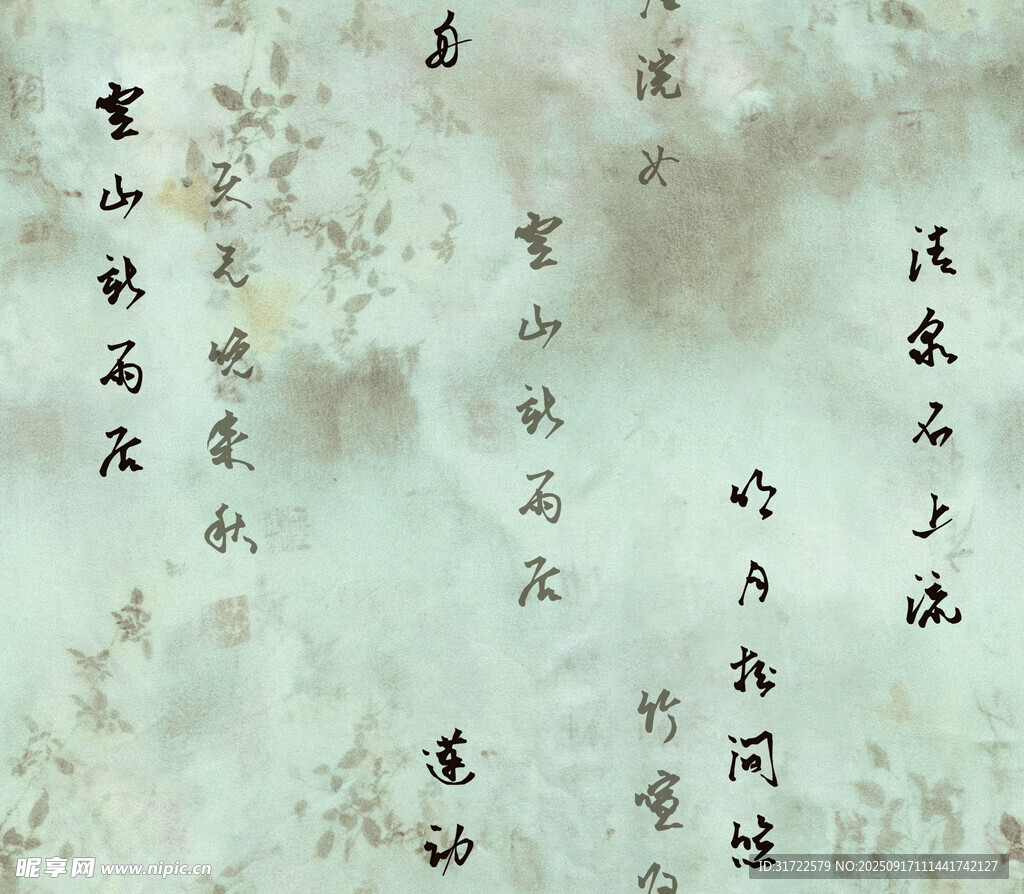 清泉石上流
明月松间照
浣女
竹喧归
空山新雨后
舟
莲动
天气晚来秋
空山新雨后
昵享网 www.nipic.cn
ID:31722579 NO:20250917111441742127